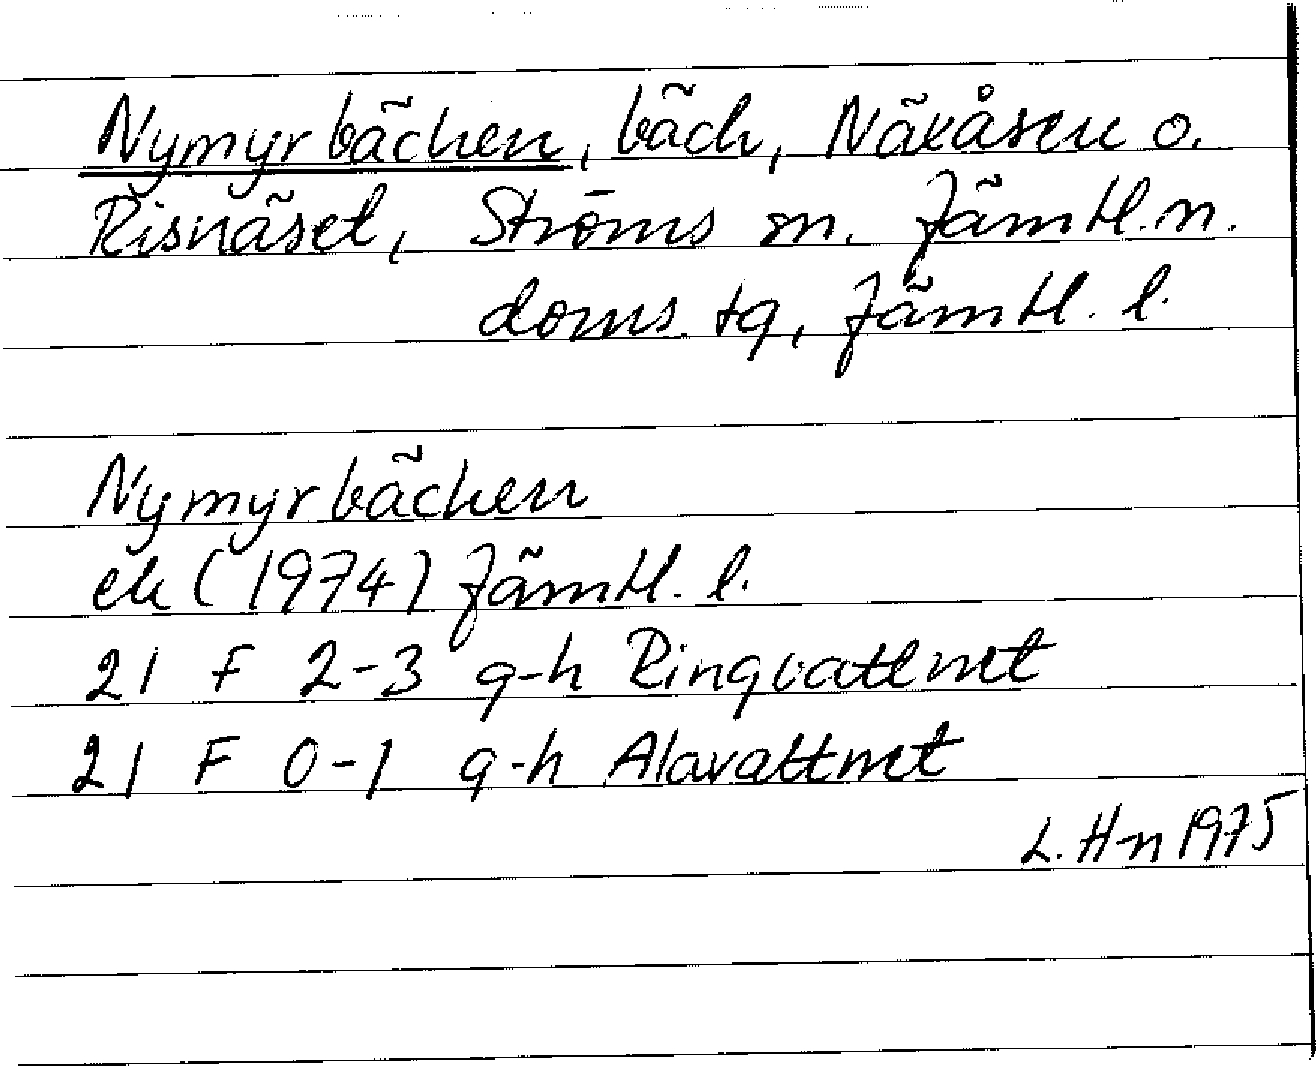 Nymyrbäcken, bäck, Näkåsen o.
Risnäset, Ströms sn. Jämtl. n.
doms. tg, Jämtl. l.
Nymyrbäcken
ek (1974) Jämtl. l.
21 F 2-3 g-h Ringvattnet
21 F 0-1 g-h Alavattnet
L. H-n 1975